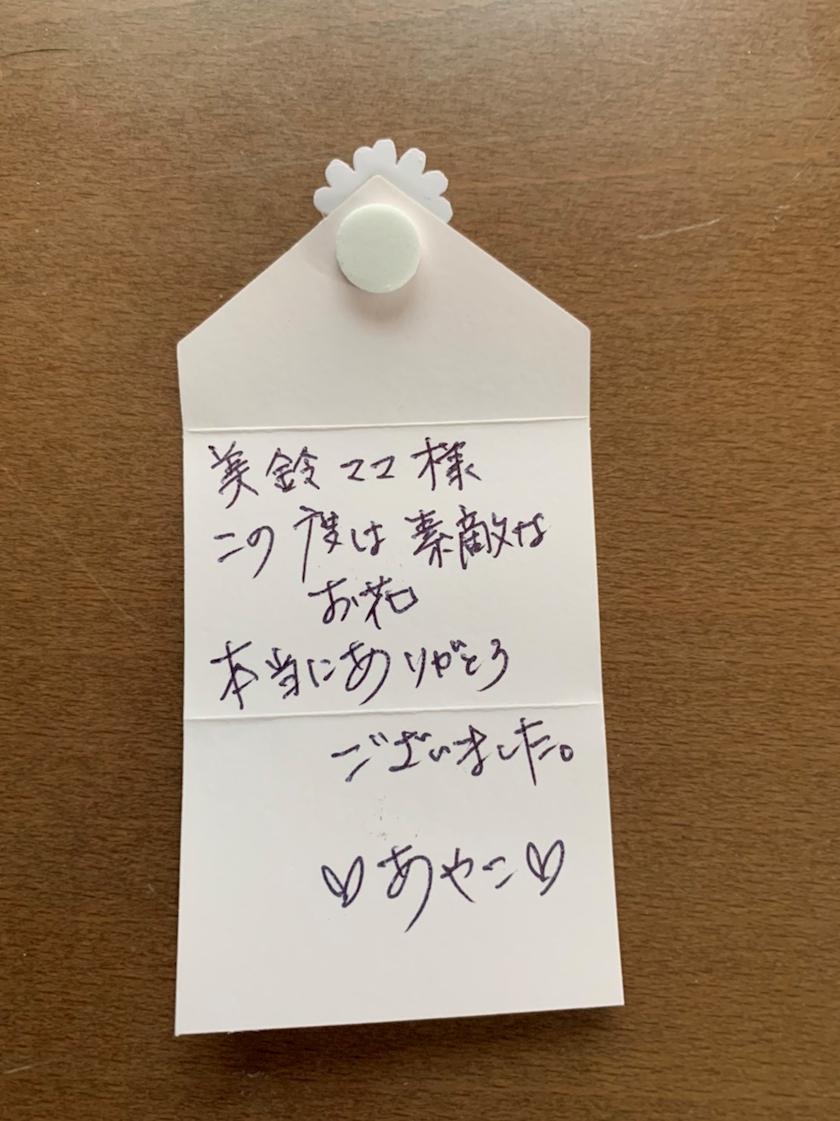 美鈴ママ様
この度は素敵な
お花
本当にありがとう
ございました。
♡あやこ♡